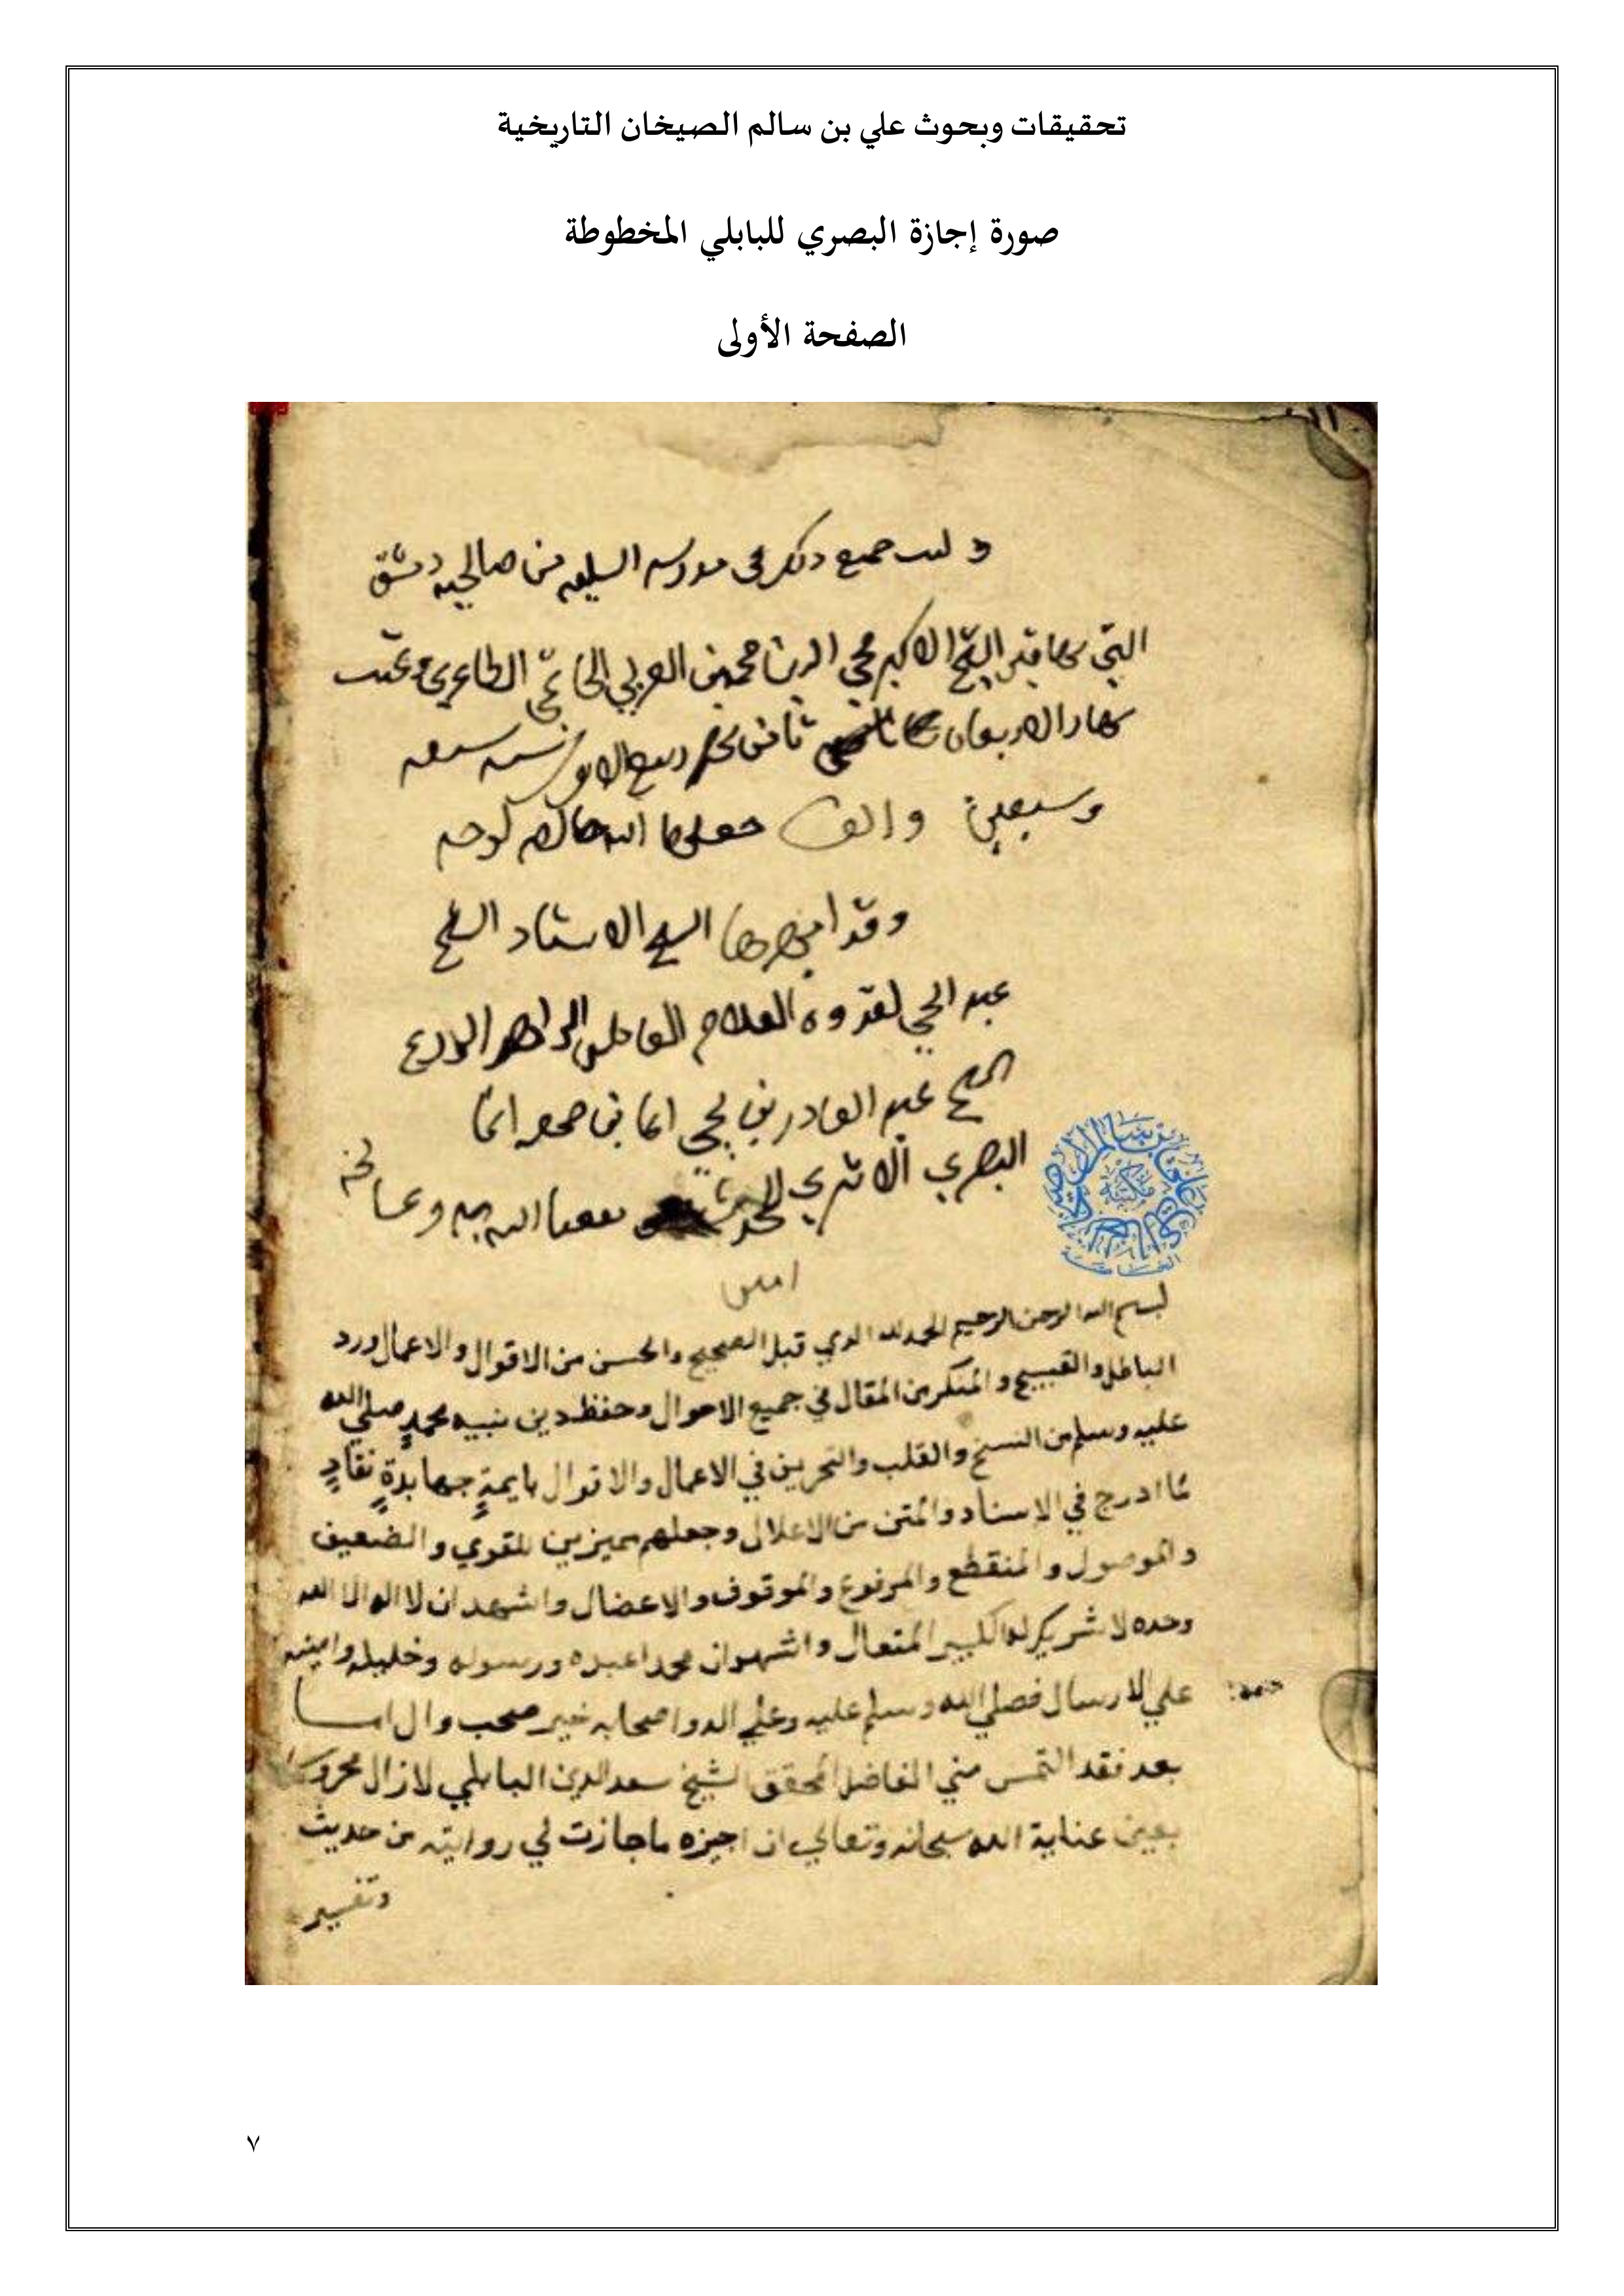 تحقيقات وبحوث علي بن سالم الصيخان التاريخية
صورة إجازة البصري للبابلي المخطوطة
الصفحة الأولى
جميع ذلك في مدرسه السليميه من صالحيه دمشق
التي بها قبر الشيخ الاكبر محي الدين محمد بن العربي الحاتمي الطاءي
نهار الاربعاء ثامن ربيع الاول سنه سبعه
وسبعين والف جعلها الله خالصه لوجهه
وقد الشيخ الاستاد الشيخ
عبد الحي لقدوه العلام العامل الزاهد الورع
الشيخ عبد القادر بن
البصري الاثري الله به
امين
بسم الله الرحمن الرحيم الحمد لله الذي قبل الصحيح والحسن من الاقوال والاعمال ورد
الباطل والقبيح والمنكر من المقال في جميع الاحوال وحفظ دين نبيه محمدٍ صلي الله
عليه وسلم من النسخ والقلب والتحريف في الاعمال والاقوال بايمةٍ جهابذةٍ نقادٍ
لما ادرج في الاسناد والمتن من الاعلال وجعلهم مميزين للقوي والضعيف
والموصول والمنقطع والمرفوع والموقوف والاعضال واشهد ان لا اله الا الله
وحده لا شريك له الكبير المتعال واشهد ان محمدا عبده ورسوله وخليله وامينه
علي الارسال فصلي الله وسلم عليه وعلي اله واصحابه خير صحب وال اما
بعد فقد التمس مني الفاضل المحقق الشيخ سعد الدين البابلي لازال محروسا
بعين عناية الله سبحانه وتعالي ان اجيزه ماجازت لي روايته من حديث
وتفسير
٧